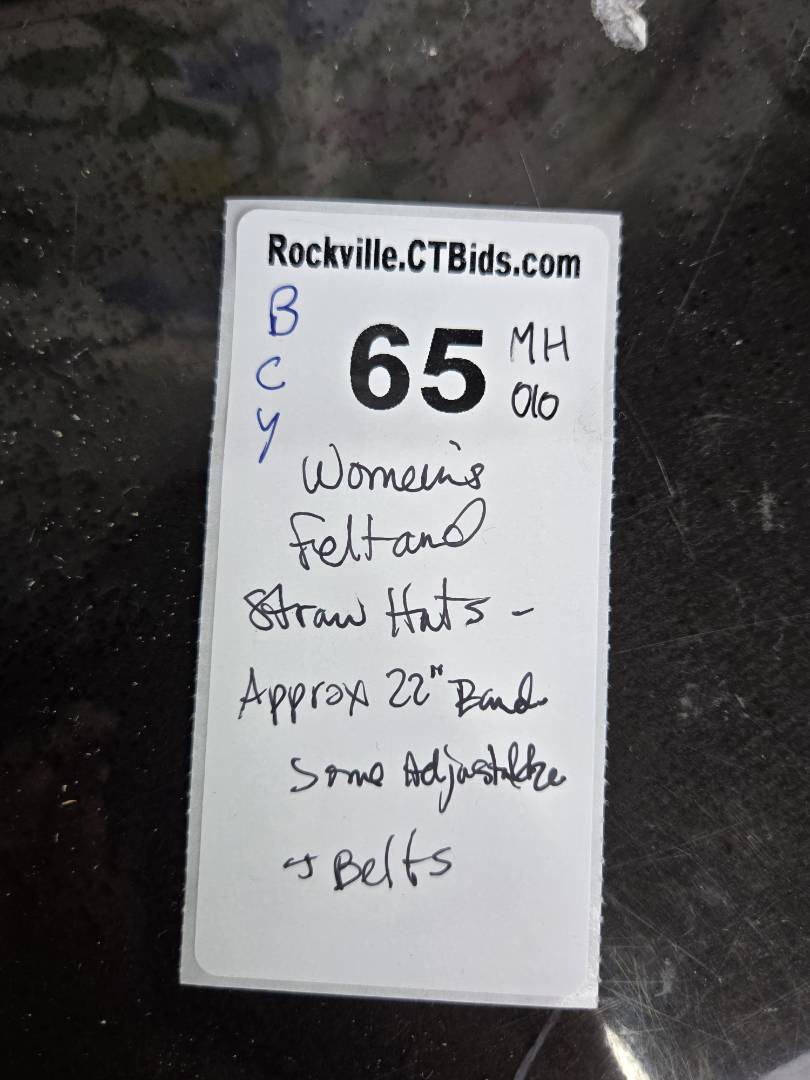 Rockville.CTBids.com
B
C
Y
65
MH
010
Women's
Felt and
Straw Hats -
Approx 22" Band
Some Adjustable
+ Belts